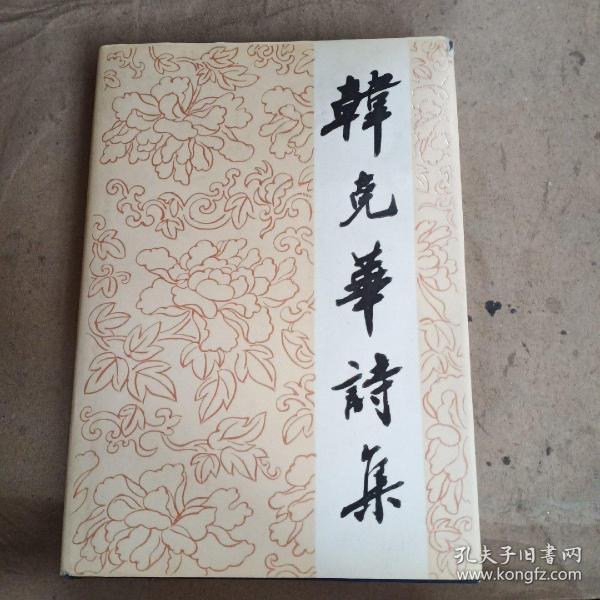 韓克華詩集
孔夫子旧書网
www.kongfz.com